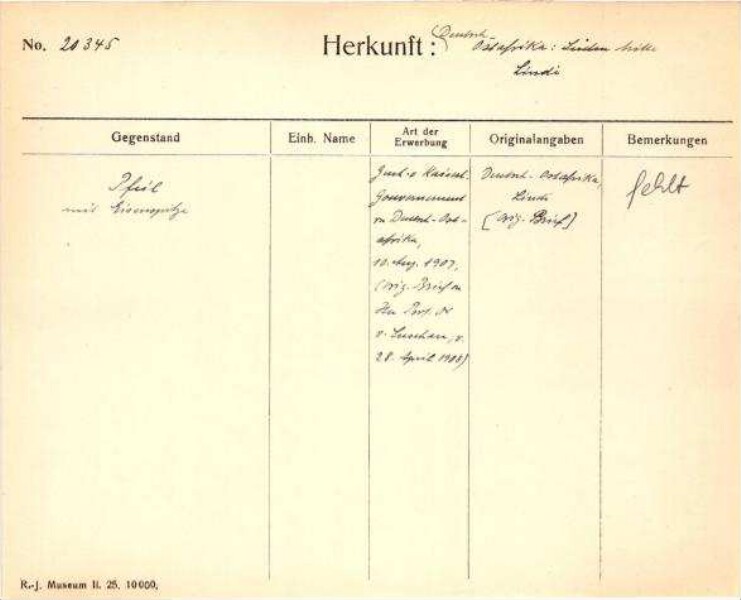 No. 20345
Herkunft: Deutsch-
Ostafrika: Süden
Lindi
Gegenstand
Einh. Name
Art der
Erwerbung
Originalangaben
Bemerkungen
Pfeil
mit Eisenspitze
v. Kaiserl.
Gouvernement
v. Deutsch-Ost-
afrika,
10. Aug. 1907,
(orig. Brief an
Hrn Prof. Dr
v. Luschan, v.
28. April 1908)
Deutsch-Ostafrika,
Lindi
[orig. Brief]
fehlt
R.-J. Museum II. 25. 10000.